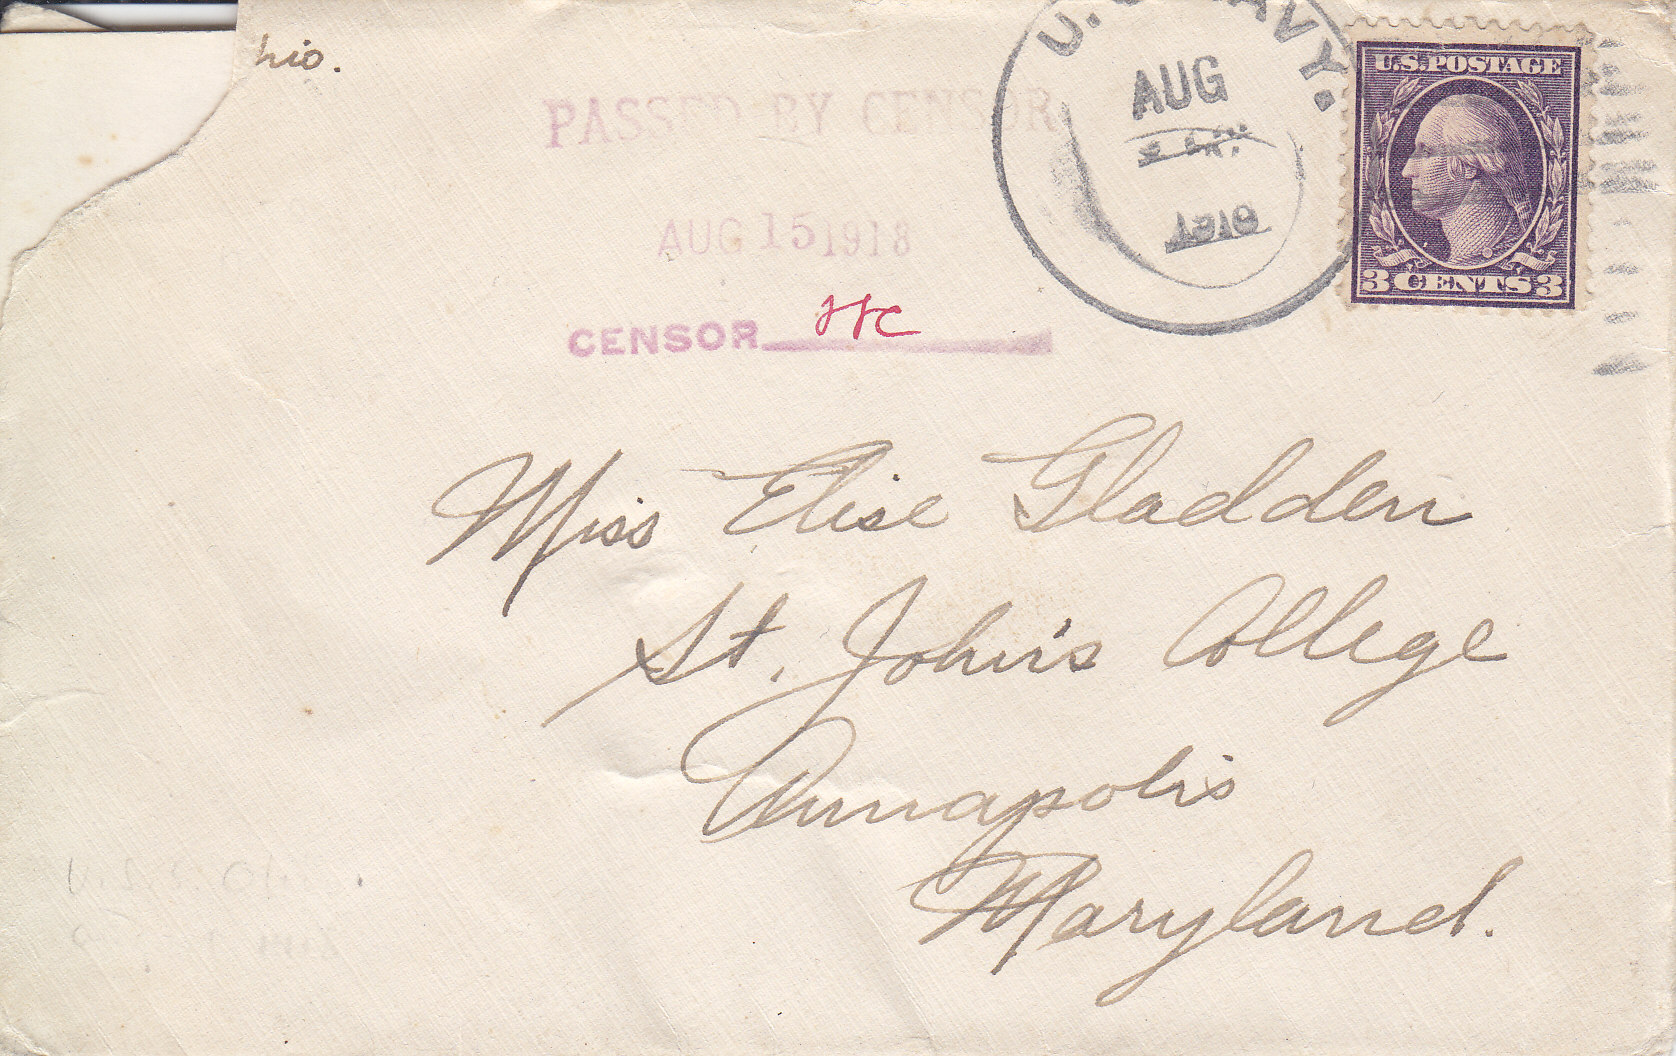 hio.
PASSED BY CENSOR
AUG 15 1918
CENSOR
U.S. NAVY.
AUG
U.S. POSTAGE
3 CENTS 3
Miss Elise Gladden
St. John's College
Annapolis
Maryland.